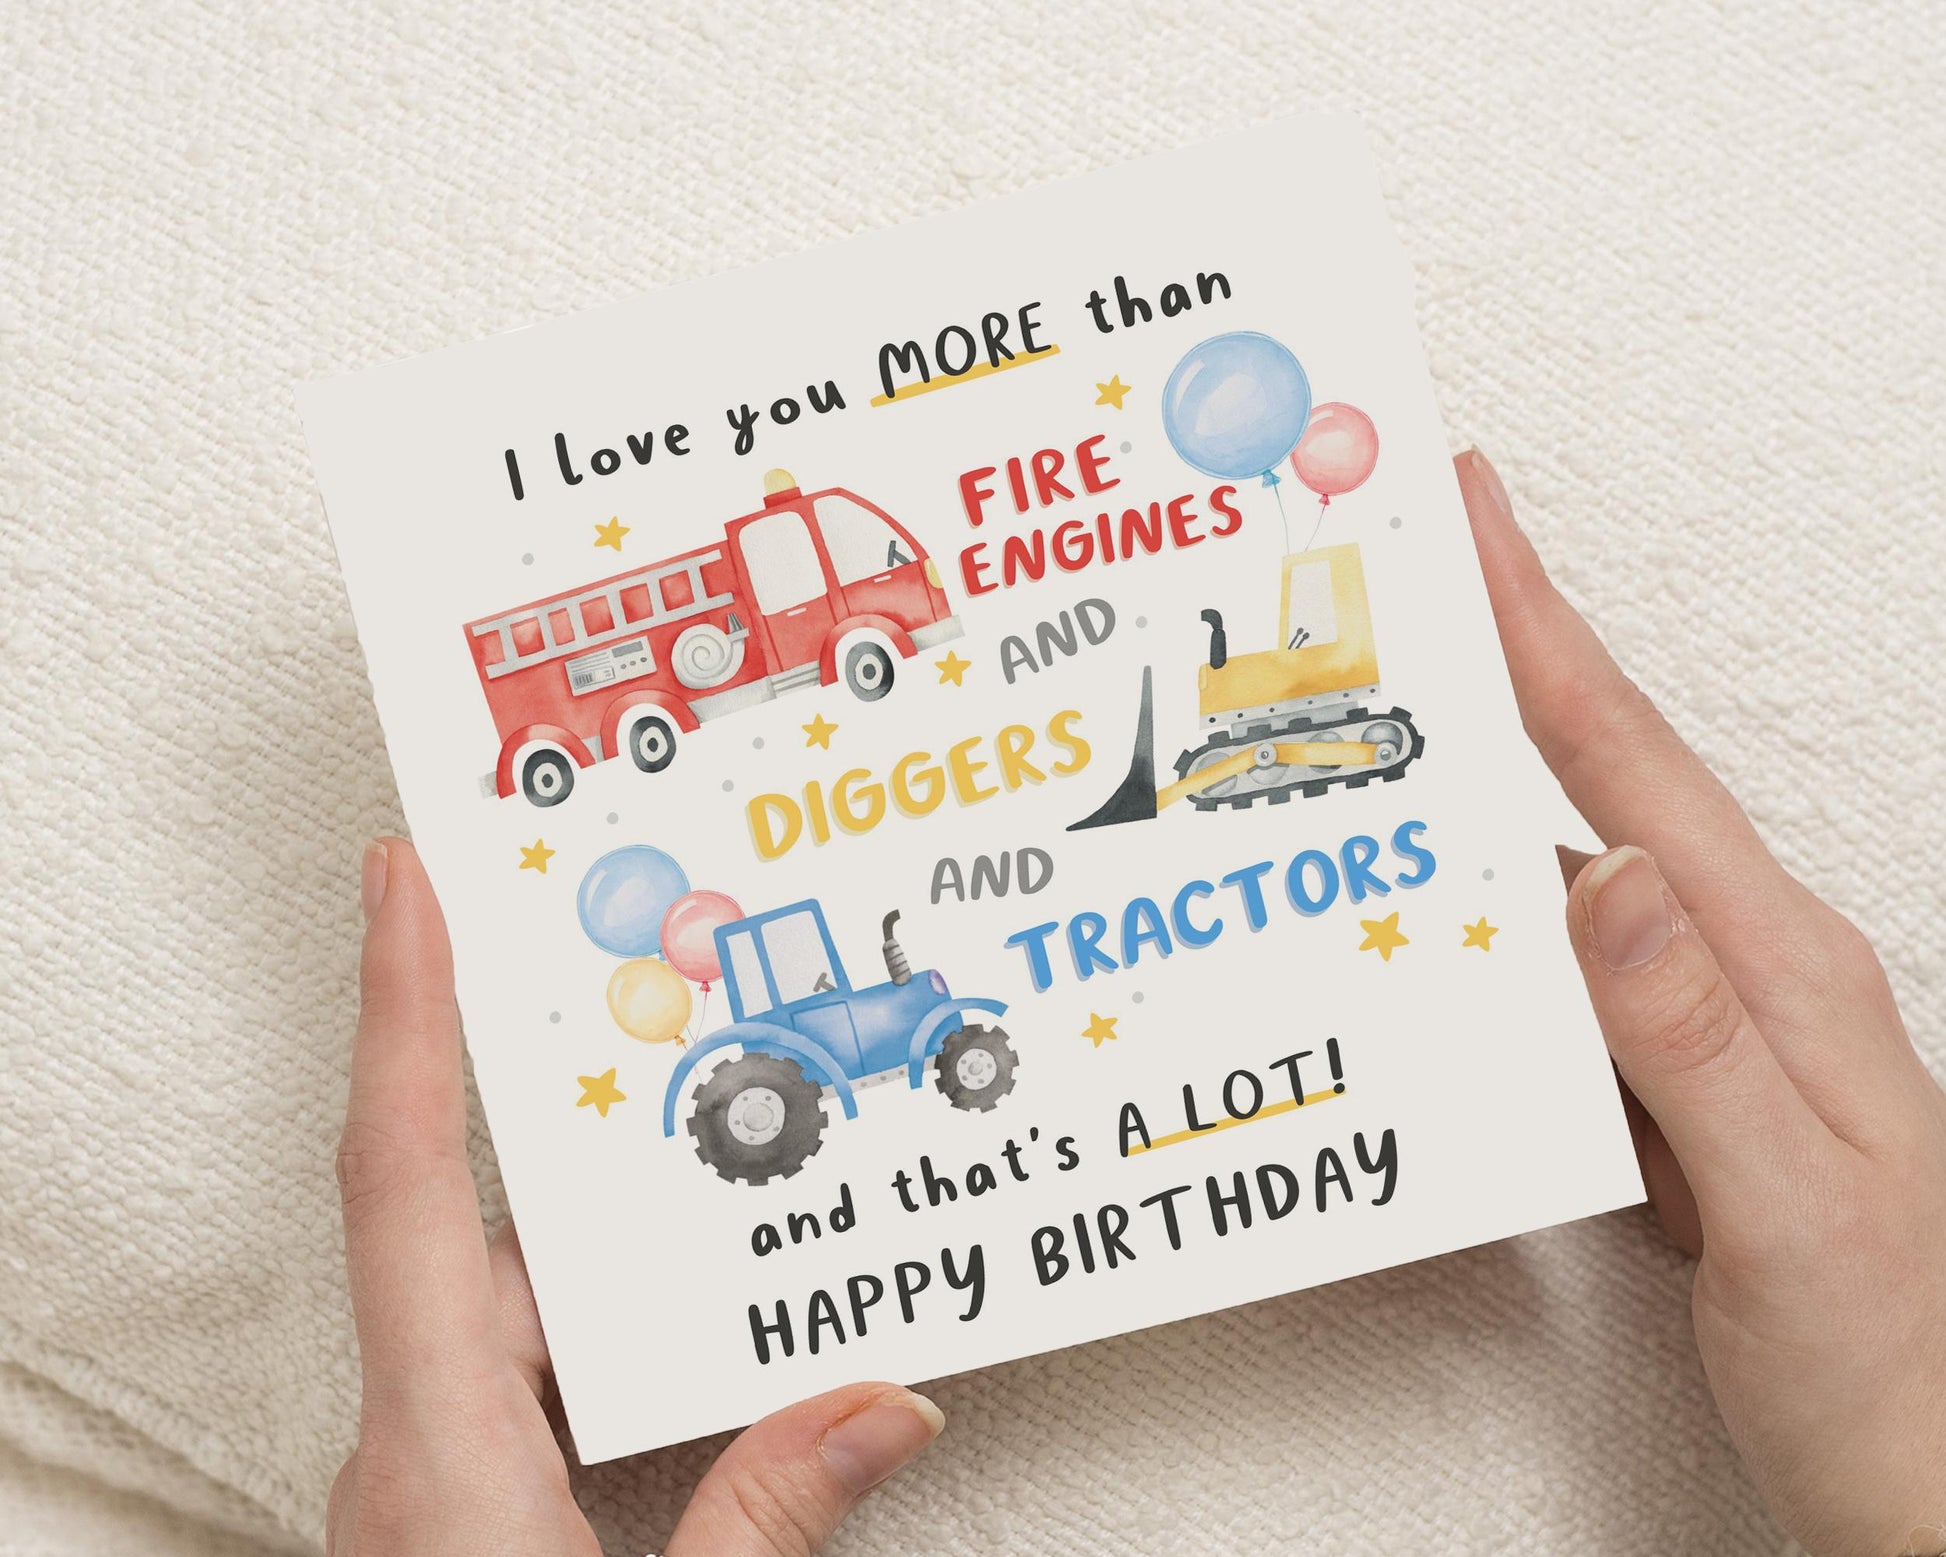 I love you MORE than
FIRE
ENGINES
AND
DIGGERS
AND
TRACTORS
and that's A LOT!
HAPPY BIRTHDAY